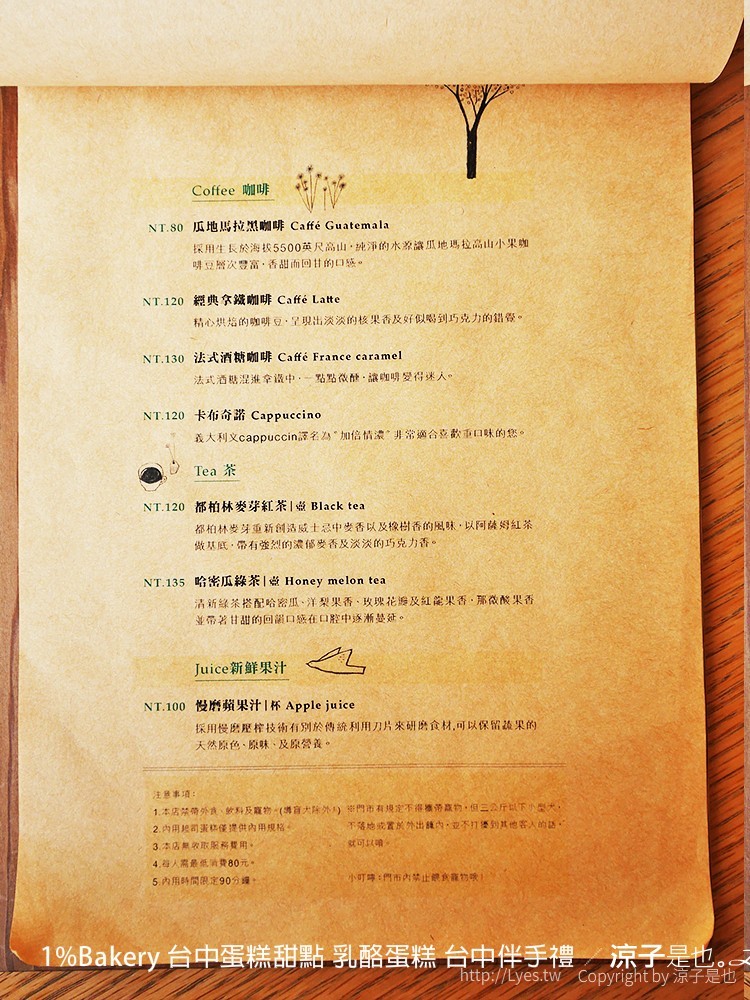 Coffee 咖啡
NT.80 瓜地馬拉黑咖啡 Caffé Guatemala
採用生長於海拔5500英尺高山，純淨的水源讓瓜地瑪拉高山小果咖
啡豆層次豐富，香甜而回甘的口感。
NT.120 經典拿鐵咖啡 Caffé Latte
精心烘焙的咖啡豆，呈現出淡淡的核果香及好似喝到巧克力的錯覺。
NT.130 法式酒糖咖啡 Caffé France caramel
法式酒糖混進拿鐵中，一點點微醺，讓咖啡變得迷人。
NT.120 卡布奇諾 Cappuccino
義大利文cappuccin譯名為“加倍情濃”非常適合喜歡重口味的您。
Tea 茶
NT.120 都柏林麥芽紅茶|壺 Black tea
都柏林麥芽重新創造威士忌中麥香以及橡樹香的風味，以阿薩姆紅茶
做基底，帶有強烈的濃郁麥香及淡淡的巧克力香。
NT.135 哈密瓜綠茶|壺 Honey melon tea
清新綠茶搭配哈密瓜、洋梨果香、玫瑰花瓣及紅龍果香，那微酸果香
並帶著甘甜的回韻口感在口腔中逐漸蔓延。
Juice新鮮果汁
NT.100 慢磨蘋果汁|杯 Apple juice
採用慢磨壓榨技術有別於傳統利用刀片來研磨食材,可以保留蔬果的
天然原色、原味、及原營養。
注意事項：
1.本店禁帶外食、飲料及寵物。(導盲犬除外) ※門市有規定不得攜帶寵物，但三公斤以下小型犬，
2.內用起司蛋糕僅提供內用規格。 不落地或置於外出籠內，並不打擾到其他客人的話，
3.本店無收取服務費用。 就可以唷。
4.每人需最低消費80元。
5.內用時間限定90分鐘。 小叮嚀：門市內禁止餵食寵物哦！
1%Bakery 台中蛋糕甜點 乳酪蛋糕 台中伴手禮 ／ 涼子是也。
http://Lyes.tw Copyright by 涼子是也